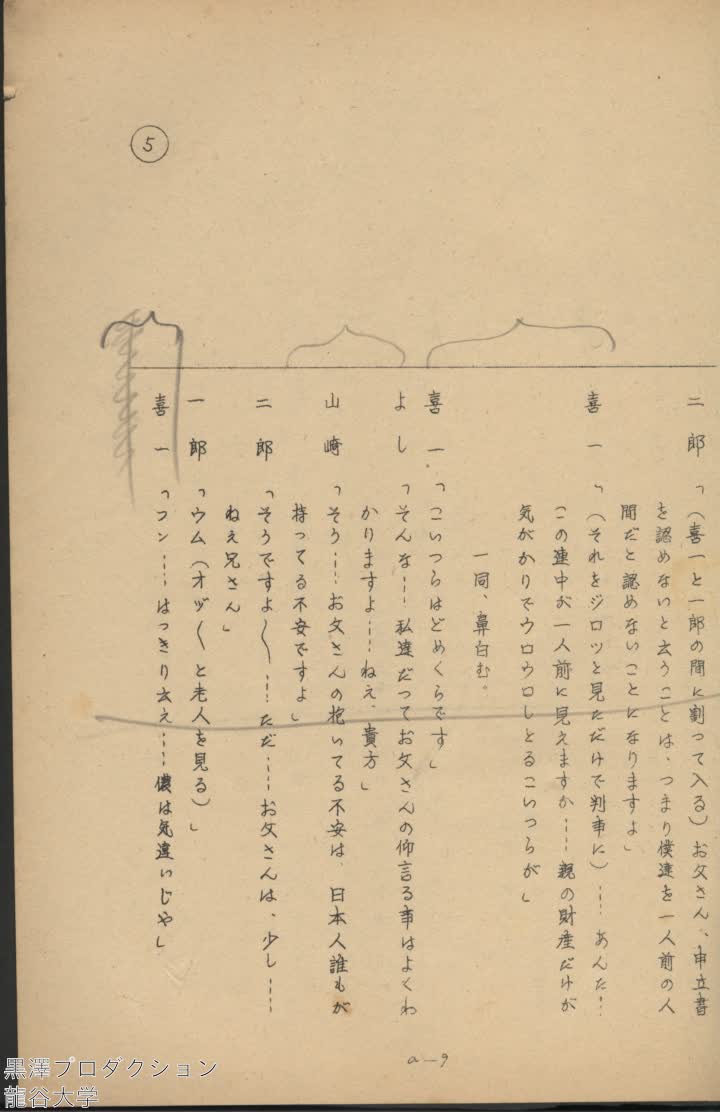 ⑤
二郎「(喜一と一郎の間に割って入る)お父さん、申立書
を認めないと云うことは、つまり僕達を一人前の人
間だと認めないことになりますよ」
喜一「(それをジロッと見ただけで判事に)……あんた…
この連中が一人前に見えますか……親の財産だけが
気がかりでウロウロしとるこいつらが」
一同、鼻白む。
喜一「こいつらはどめくらです」
よし「そんな……私達だってお父さんの仰言る事はよくわ
かりますよ……ねえ、貴方」
山崎「そう……お父さんの抱いてる不安は、日本人誰もが
持ってる不安ですよ」
二郎「そうですよ〱……ただ……お父さんは、少し……
ねえ兄さん」
一郎「ウム(オヅ〱と老人を見る)」
喜一「フン……はっきり云え……儂は気違いじや」
a—9
黒澤プロダクション
龍谷大学